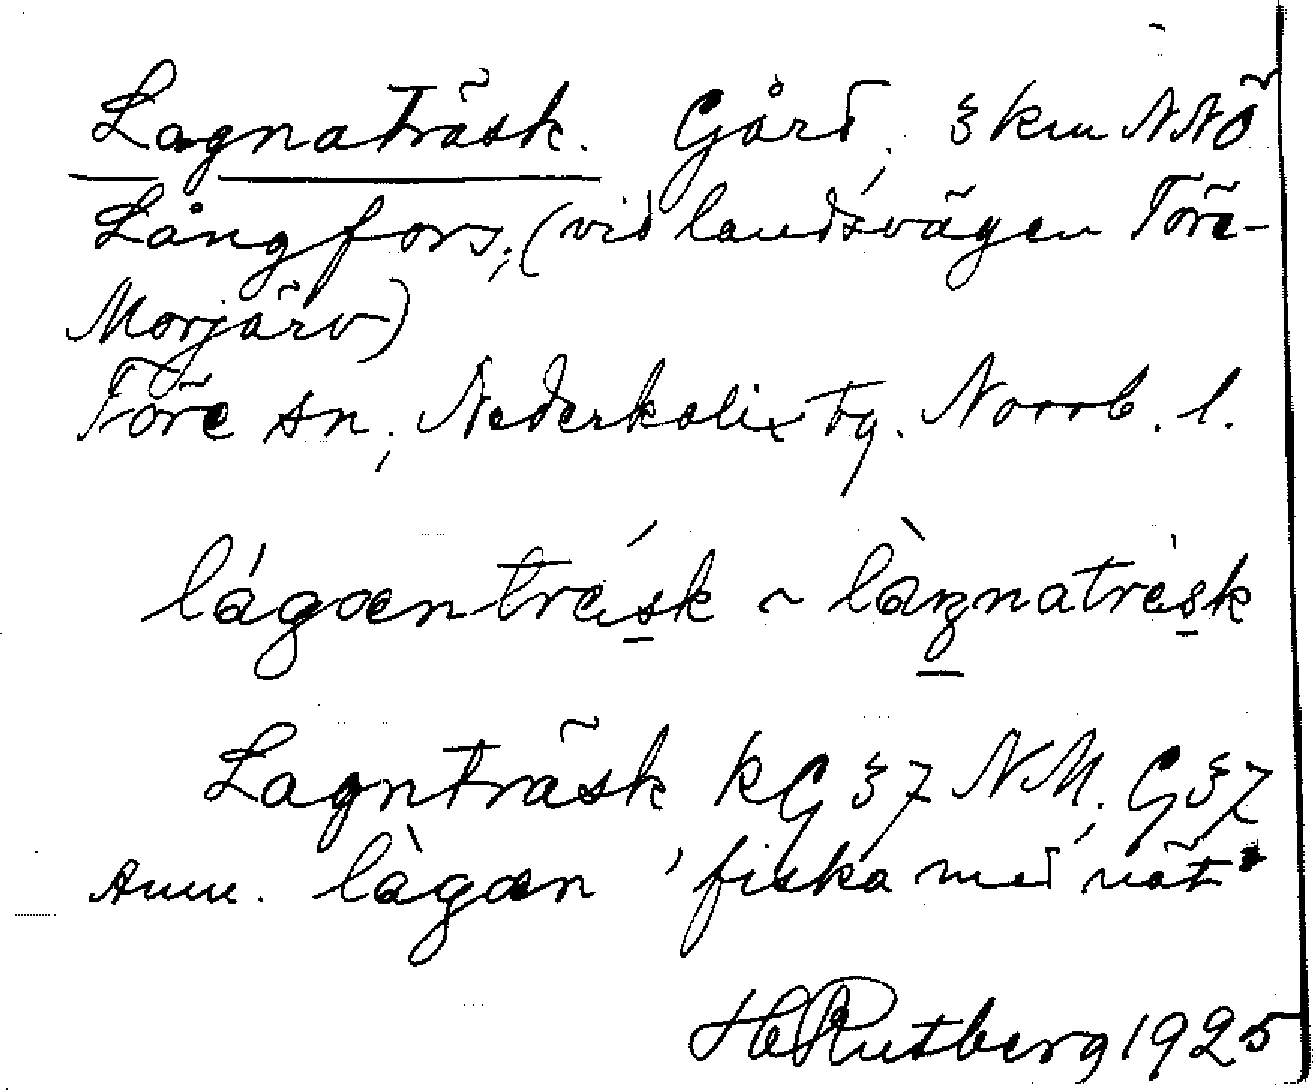 Lagnaträsk. Gård, 3 km NNÖ
Långfors, (vid landsvägen Töre-
Morjärv)
Töre sn, Nederkalix tg. Norrb. l.
lágæntrésk ~ làgnatrésk
Lagnträsk KG 37 NM, G 37
Anm. làgæn 'fiska med nät'
H Rutberg 1925